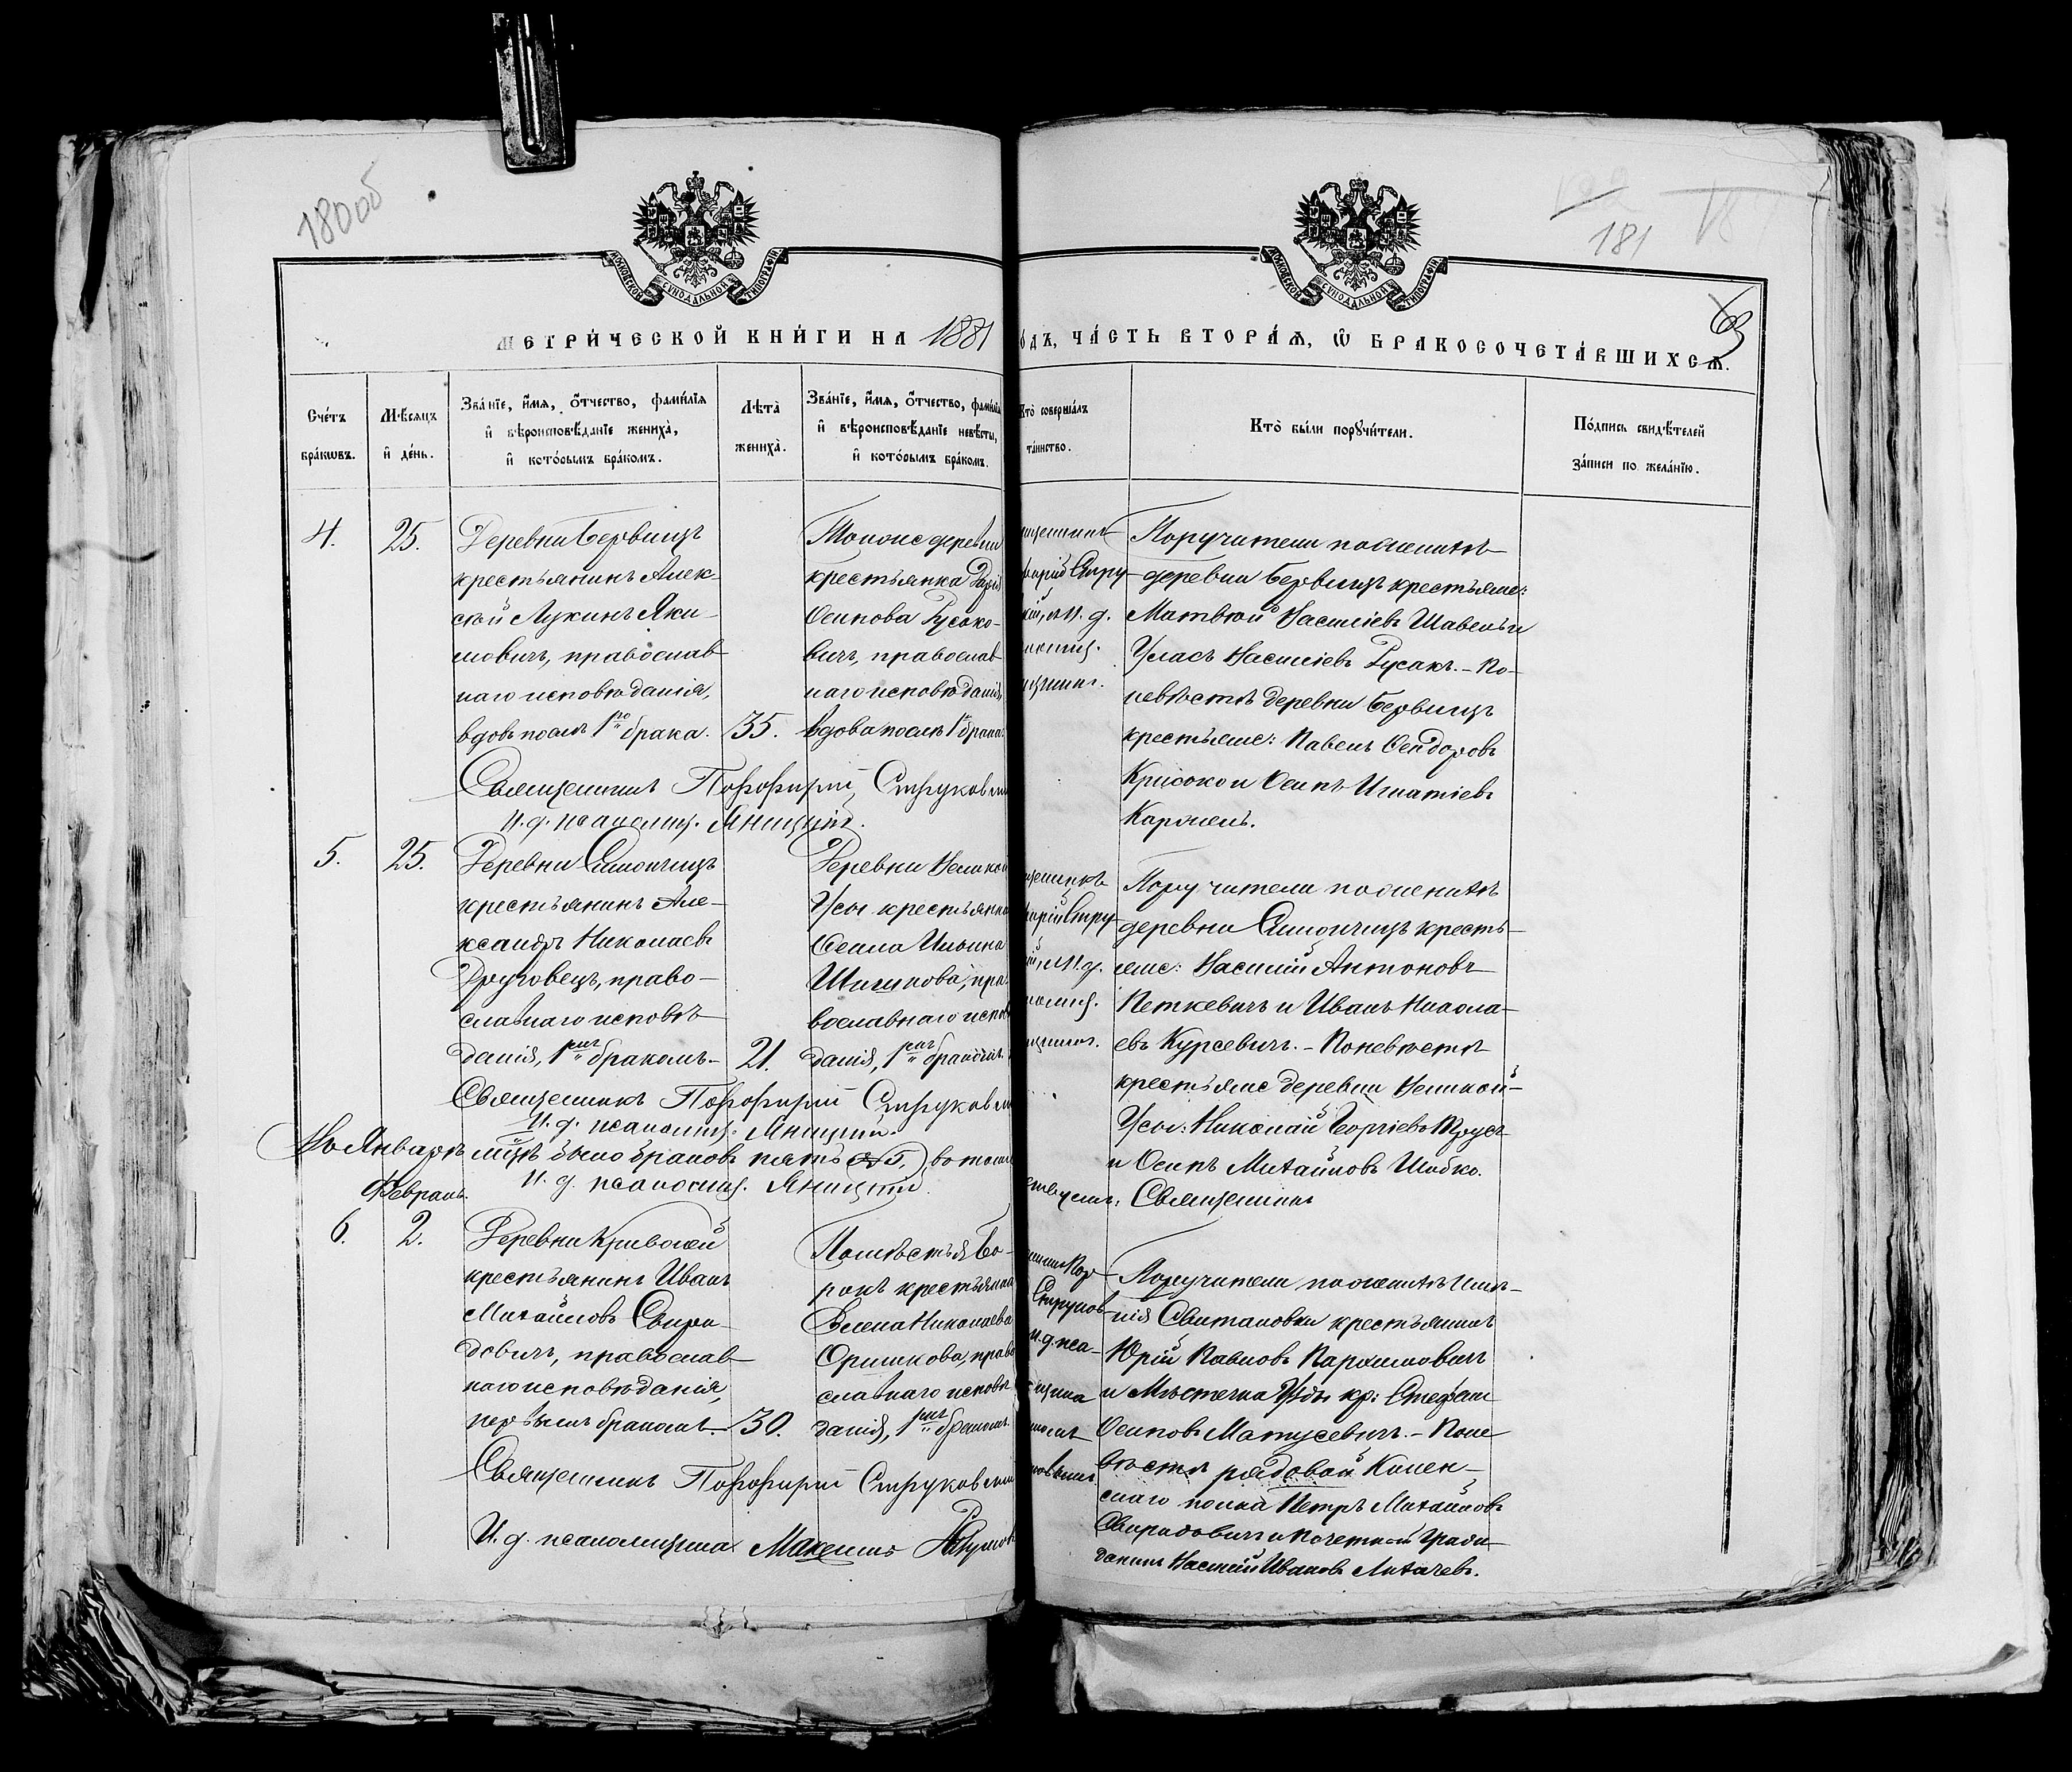 180 об
181
63
МОСКОВСКОЙ СѴНОДАЛЬНОЙ ТИПОГРАФІИ
МОСКОВСКОЙ СѴНОДАЛЬНОЙ ТИПОГРАФІИ
МЕТРИ́ЧЕСКОЙ КНИ́ГИ НА 1881
ОДЪ, ЧА́СТЬ ВТОРА́Ѧ, Ѿ БРАКОСОЧЕТА́ВШИХСѦ.
Сче́тъ
бра́кѡвъ.
Мѣ́сѧцъ
и҆ де́нь.
Зва́нїе, и҆́мѧ, ѻ҆́тчество, фами́лїѧ
и҆ вѣроисповѣ́данїе жениха̀,
и҆ кото́рымъ бра́комъ.
Лѣ́та
жениха̀.
Зва́нїе, и҆́мѧ, ѻ҆́тчество, фами́лїѧ
и҆ вѣроисповѣ́данїе невѣ́сты,
и҆ кото́рымъ бра́комъ.
Кто̀ соверша́лъ
та́инство.
Кто̀ бы́ли порꙋчи́тели.
По́дпись свидѣ́телей
за́писи по жела́нїю.
4.
25.
Деревни Бервищъ
крестьянинъ Алек-
сѣй Лукинъ Яки-
мовичъ, православ
наго исповѣданія,
вдовъ послѣ 1го брака.
35.
Тойже деревни
крестьянка
Осипова Русако-
вичъ, православ
наго исповѣданія,
вдова послѣ 1 брака
Стру-
и. д.
Поручители по женихѣ
деревни Бервищъ крестьяне:
Матвѣй Василіевъ Шавель и
Уласъ Василіевъ Русакъ. – По
невѣстѣ деревни Бервищъ
крестьяне: Павелъ Сендоровъ
и Осипъ Игнатіевъ
Священникъ Порфирій Струков
И. д. псаломщ. Яницкій.
5.
25.
Деревни Симончицъ
крестьянинъ Але-
ксандръ Николаевъ
Друговецъ, право-
славнаго исповѣ
данія, 1мъ бракомъ.
21.
Деревни Великой
Усы крестьянка
Ильина
пра-
вославнаго испов
данія, 1мъ бракомъ.
Стру-
и. д.
Поручители по женихѣ
деревни Симончицъ кресть-
яне: Василій Антоновъ
Петкевичъ и Иванъ Никола-
евъ Курсевичъ. – По невѣстѣ
крестьяне деревни Великой
Усы: Николай Георгіевъ
и Осипъ Михайловъ Шибко.
Священникъ Порфирій Струков
И. д. псаломщ. Яницкій.
Въ Январѣ мцѣ было браковъ пять (№ 5),
Священникъ
И. д. псаломщ. Яницкій
Февраль.
6.
2.
Деревни
крестьянинъ Иванъ
Михайловъ Свири-
довичъ, православ
наго исповѣданія,
первымъ бракомъ.
30.
Помѣстья Бо-
рокъ крестьянка
Елена Николаева
Оришкова, право
славнаго исповѣ
данія, 1мъ бракомъ.
Струков
и. д. пса-
Поручители по женихѣ имѣ-
нія Свитановки крестьянинъ
Юрій Павловъ Пархимовичъ
и Мѣстечка Узды кр: Стефан
Осиповъ Матусевичъ. – По не
вѣстѣ рядовой
скаго полка Петръ Михайловъ
Свиридовичъ и Почетный Граж
данинъ Василій Ивановъ Лихачевъ.
Священникъ Порфирій Струков
И. д. псаломщика Максимъ